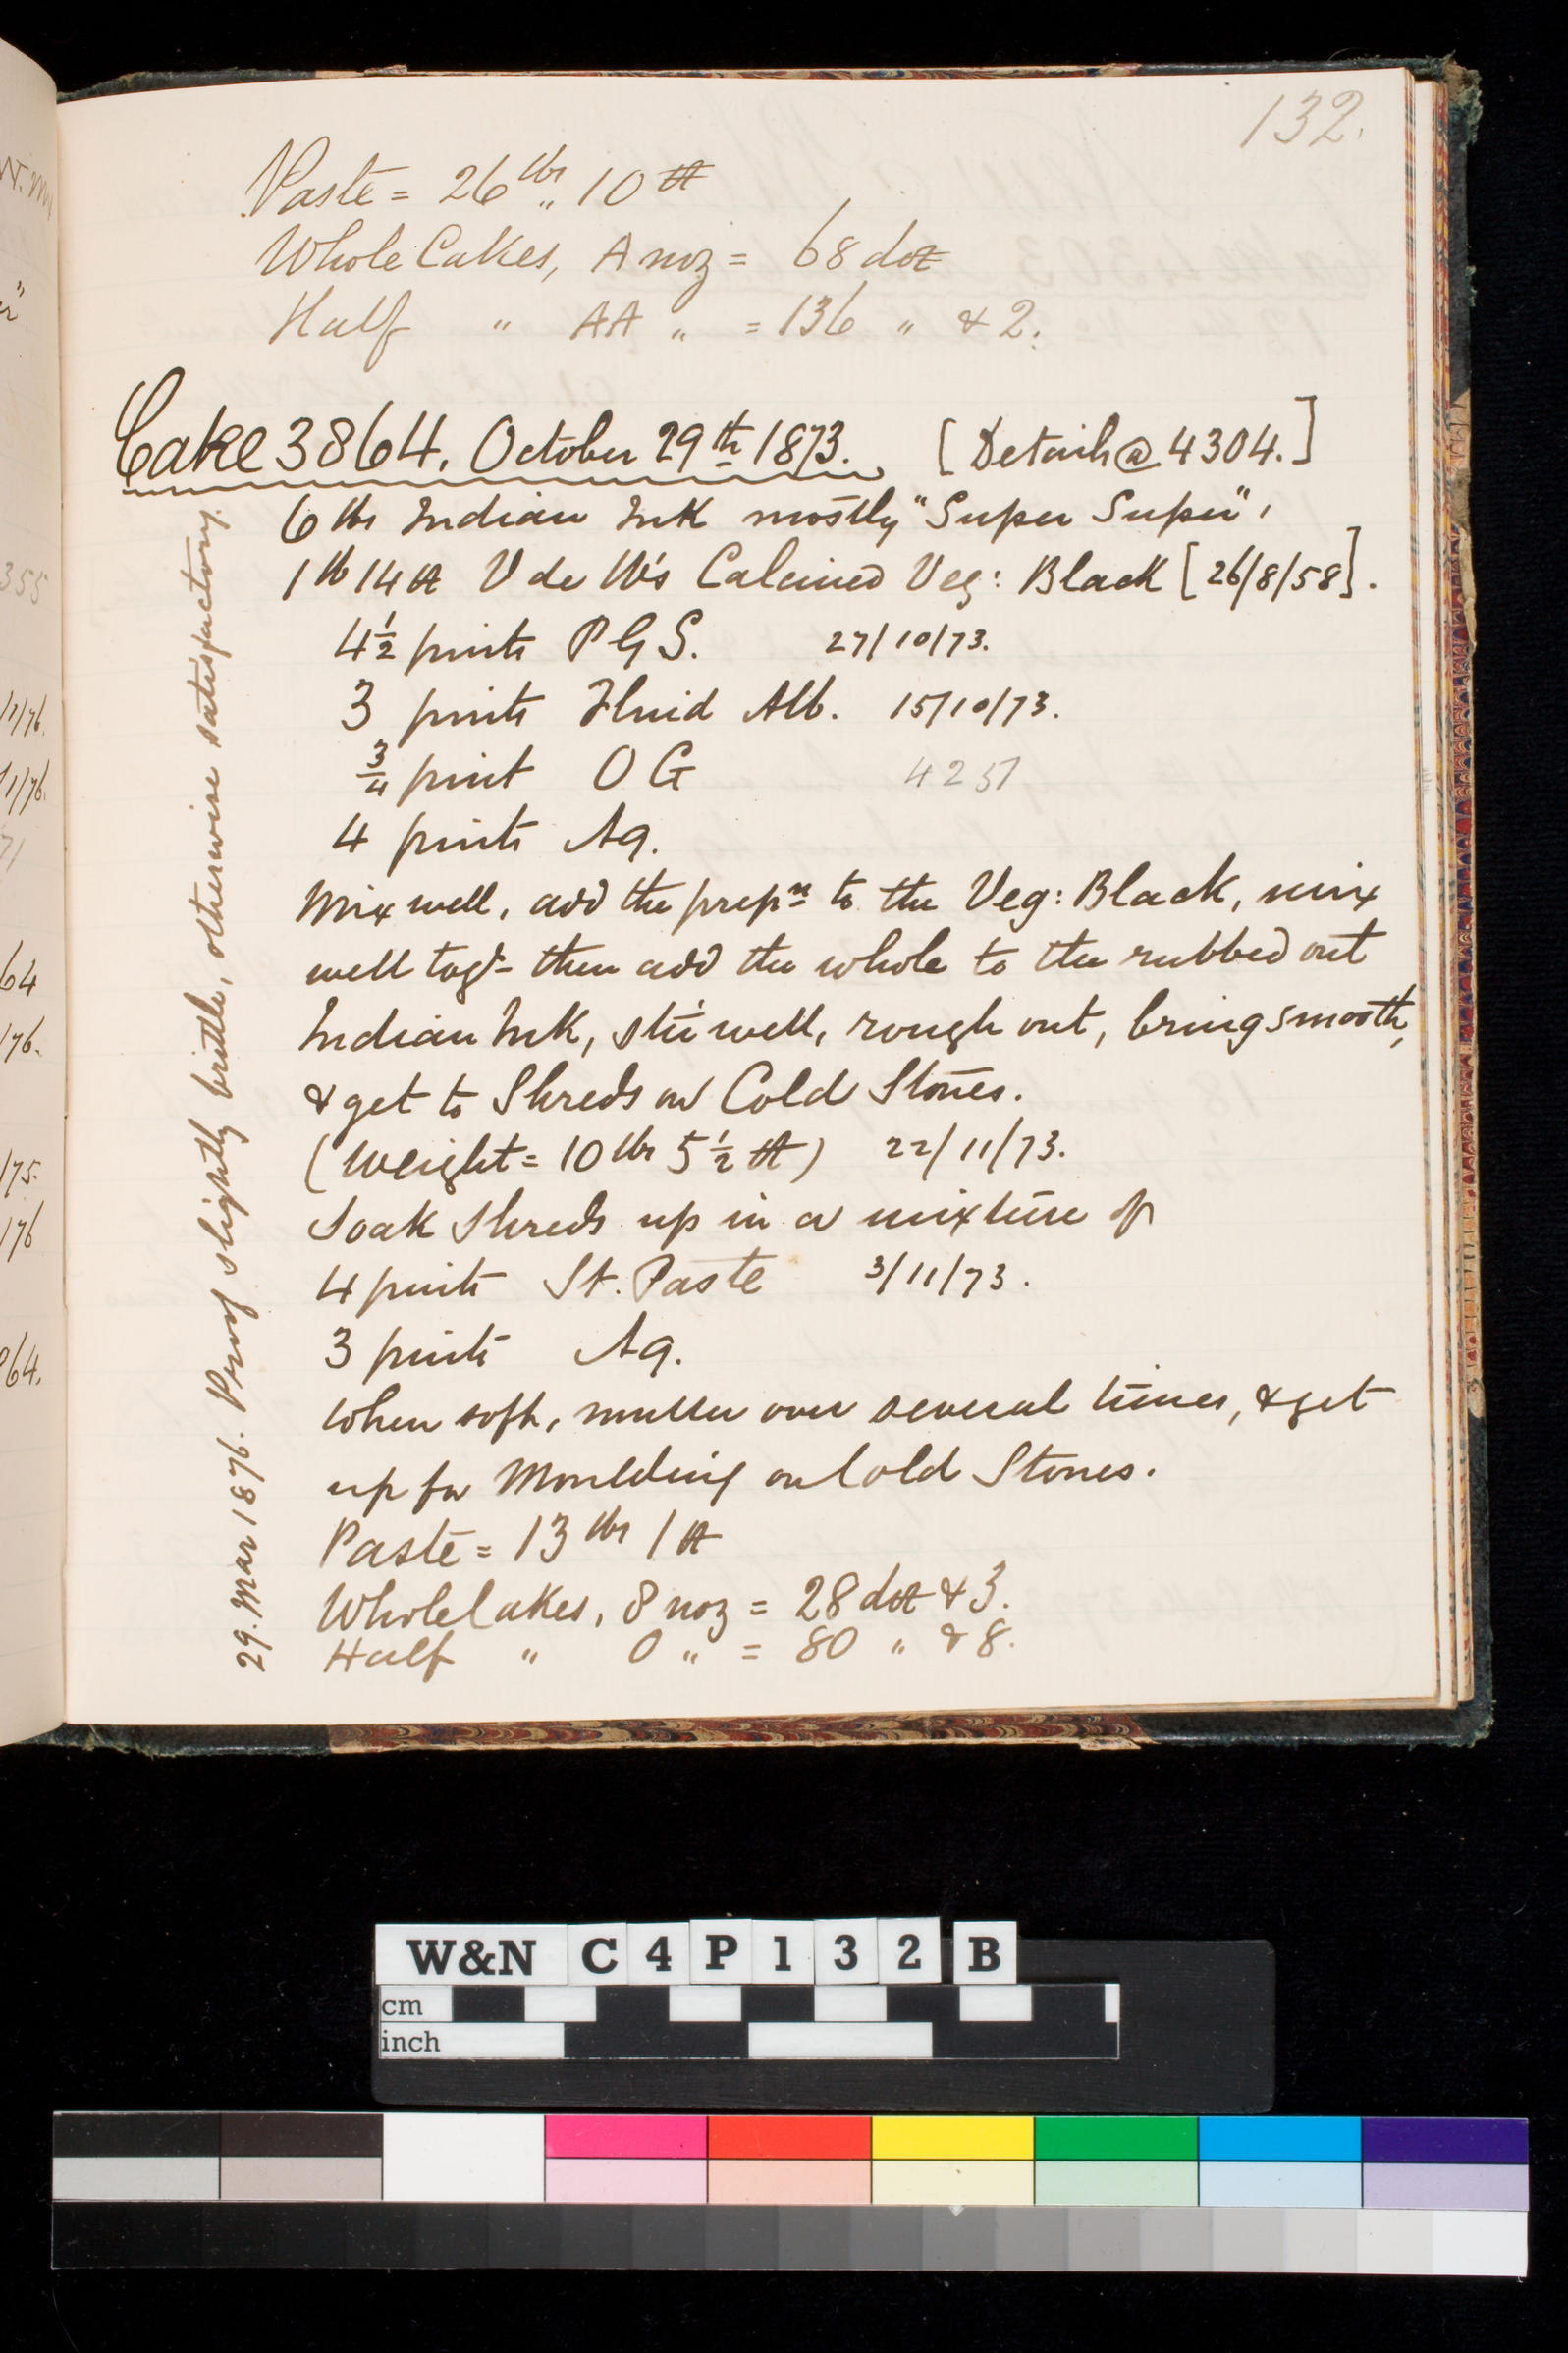 132.
Paste = 26 lbs „ 10 ℔
Whole Cakes, A noz = 68 doz
Half " AA „ = 136 „ & 2.
Cake 3864. October 29th 1873. [Details @ 4304.]
6 lbs Indian Ink mostly "Super Super",
1 lb 14 ℔ V de W's Calcined Veg: Black [26/8/58].
4½ pints P G S. 27/10/73.
3 pints Fluid Alb. 15/10/73.
¾ pint O G 4257
4 pints Aq.
Mix well, add the prepn to the Veg: Black, mix
well togr then add the whole to the rubbed out
Indian Ink, stir well, rough out, bring smooth,
& get to Shreds on Cold Stones.
(Weight = 10 lbs 5½ ℔) 22/11/73.
Soak Shreds up in a mixture of
4 pints St. Paste 3/11/73.
3 pints Aq.
When soft, muller over several times, & get
up for Moulding on Cold Stones.
Paste = 13 lbs 1 ℔
Whole Cakes, 8 noz = 28 doz & 3.
Half " O „ = 80 „ & 8.
29. Mar 1876. Proof slightly brittle, otherwise satisfactory.
355
64
176.
175.
176
864.
W&N C4P132B
cm
inch